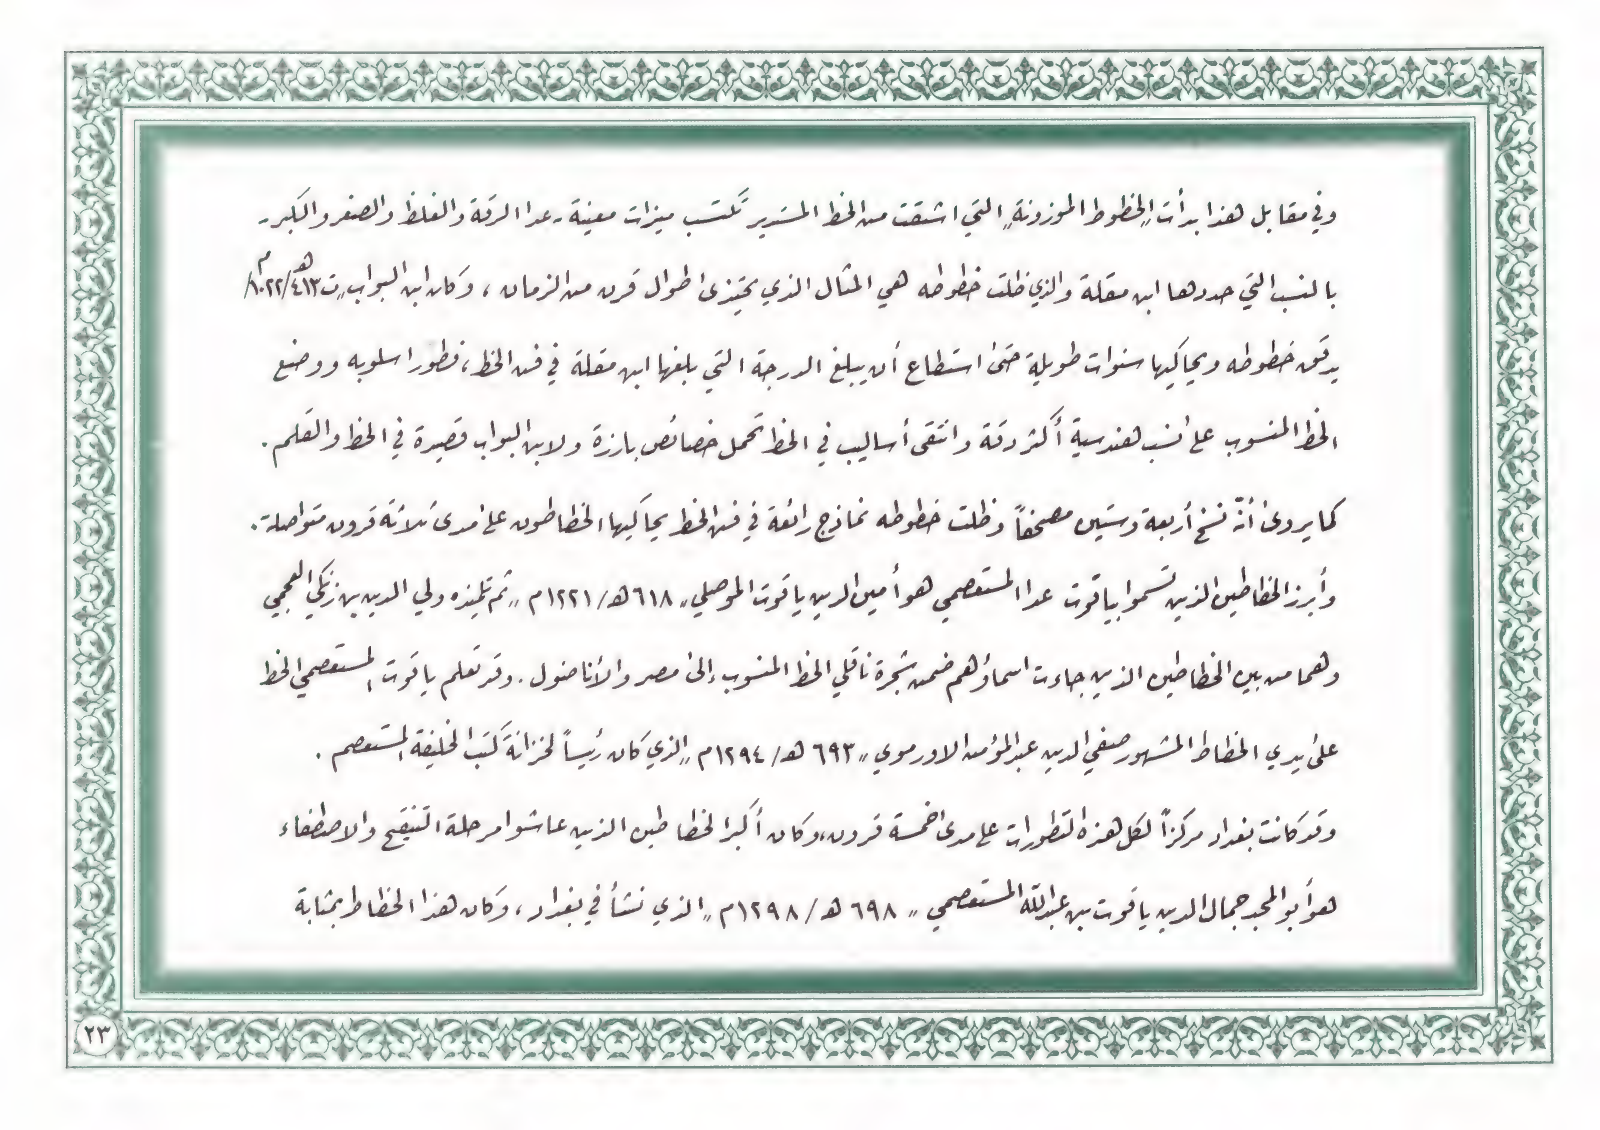 وفي مقابل هذا بدأت "الخطوط الموزونة" التي اشتقت من الخط المستدير تكتسب ميزات معينة - عدا الرقة والغلظ والصغر والكبر -
بالنسب التي حددها ابن مقلة والذي ظلت خطوطه هي المثال الذي يحتذى طوال قرن من الزمان ، وكان ابن البواب "ت ٤١٣هـ/١٠٢٢م/
يدقق خطوطه ويحاكيها سنوات طويلة حتى استطاع أن يبلغ الدرجة التي بلغها ابن مقلة في فن الخط ، فطور اسلوبه ووضع
الخط المنسوب على نسب هندسية أكثر دقة وانتقى أساليب في الخط تحمل خصائص بارزة ولابن البواب قصيدة في الخط والقلم .
كما يروى أنّه نسخ أربعة وستين مصحفاً وظلت خطوطه نماذج رائعة في فن الخط يحاكيها الخطاطون على مدى ثلاثة قرون متواصلة .
وأبرز الخطاطين الذين تسموا بياقوت عدا المستعصمي هو أمين الدين ياقوت الموصلي "٦١٨هـ/١٢٢١م" ثم تلميذه ولي الدين بن زنكي العجمي
وهما من بين الخطاطين الذين جاءت اسماؤهم ضمن شجرة ناقلي الخط المنسوب إلى مصر والأناضول . وقد تعلم ياقوت المستعصمي الخط
على يدي الخطاط المشهور صفي الدين عبد المؤمن الاورموي "٦٩٣ هـ/١٢٩٤م" الذي كان رئيساً لخزانة كتب الخليفة المستعصم .
وقد كانت بغداد مركزاً لكل هذه التطورات على مدى خمسة قرون ، وكان أكبر الخطاطين الذين عاشوا مرحلة التنقيح والاصطفاء
هو أبو المجد جمال الدين ياقوت بن عبدالله المستعصمي "٦٩٨ هـ/١٢٩٨م" الذي نشأ في بغداد ، وكان هذا الخطاط بمثابة
٢٣